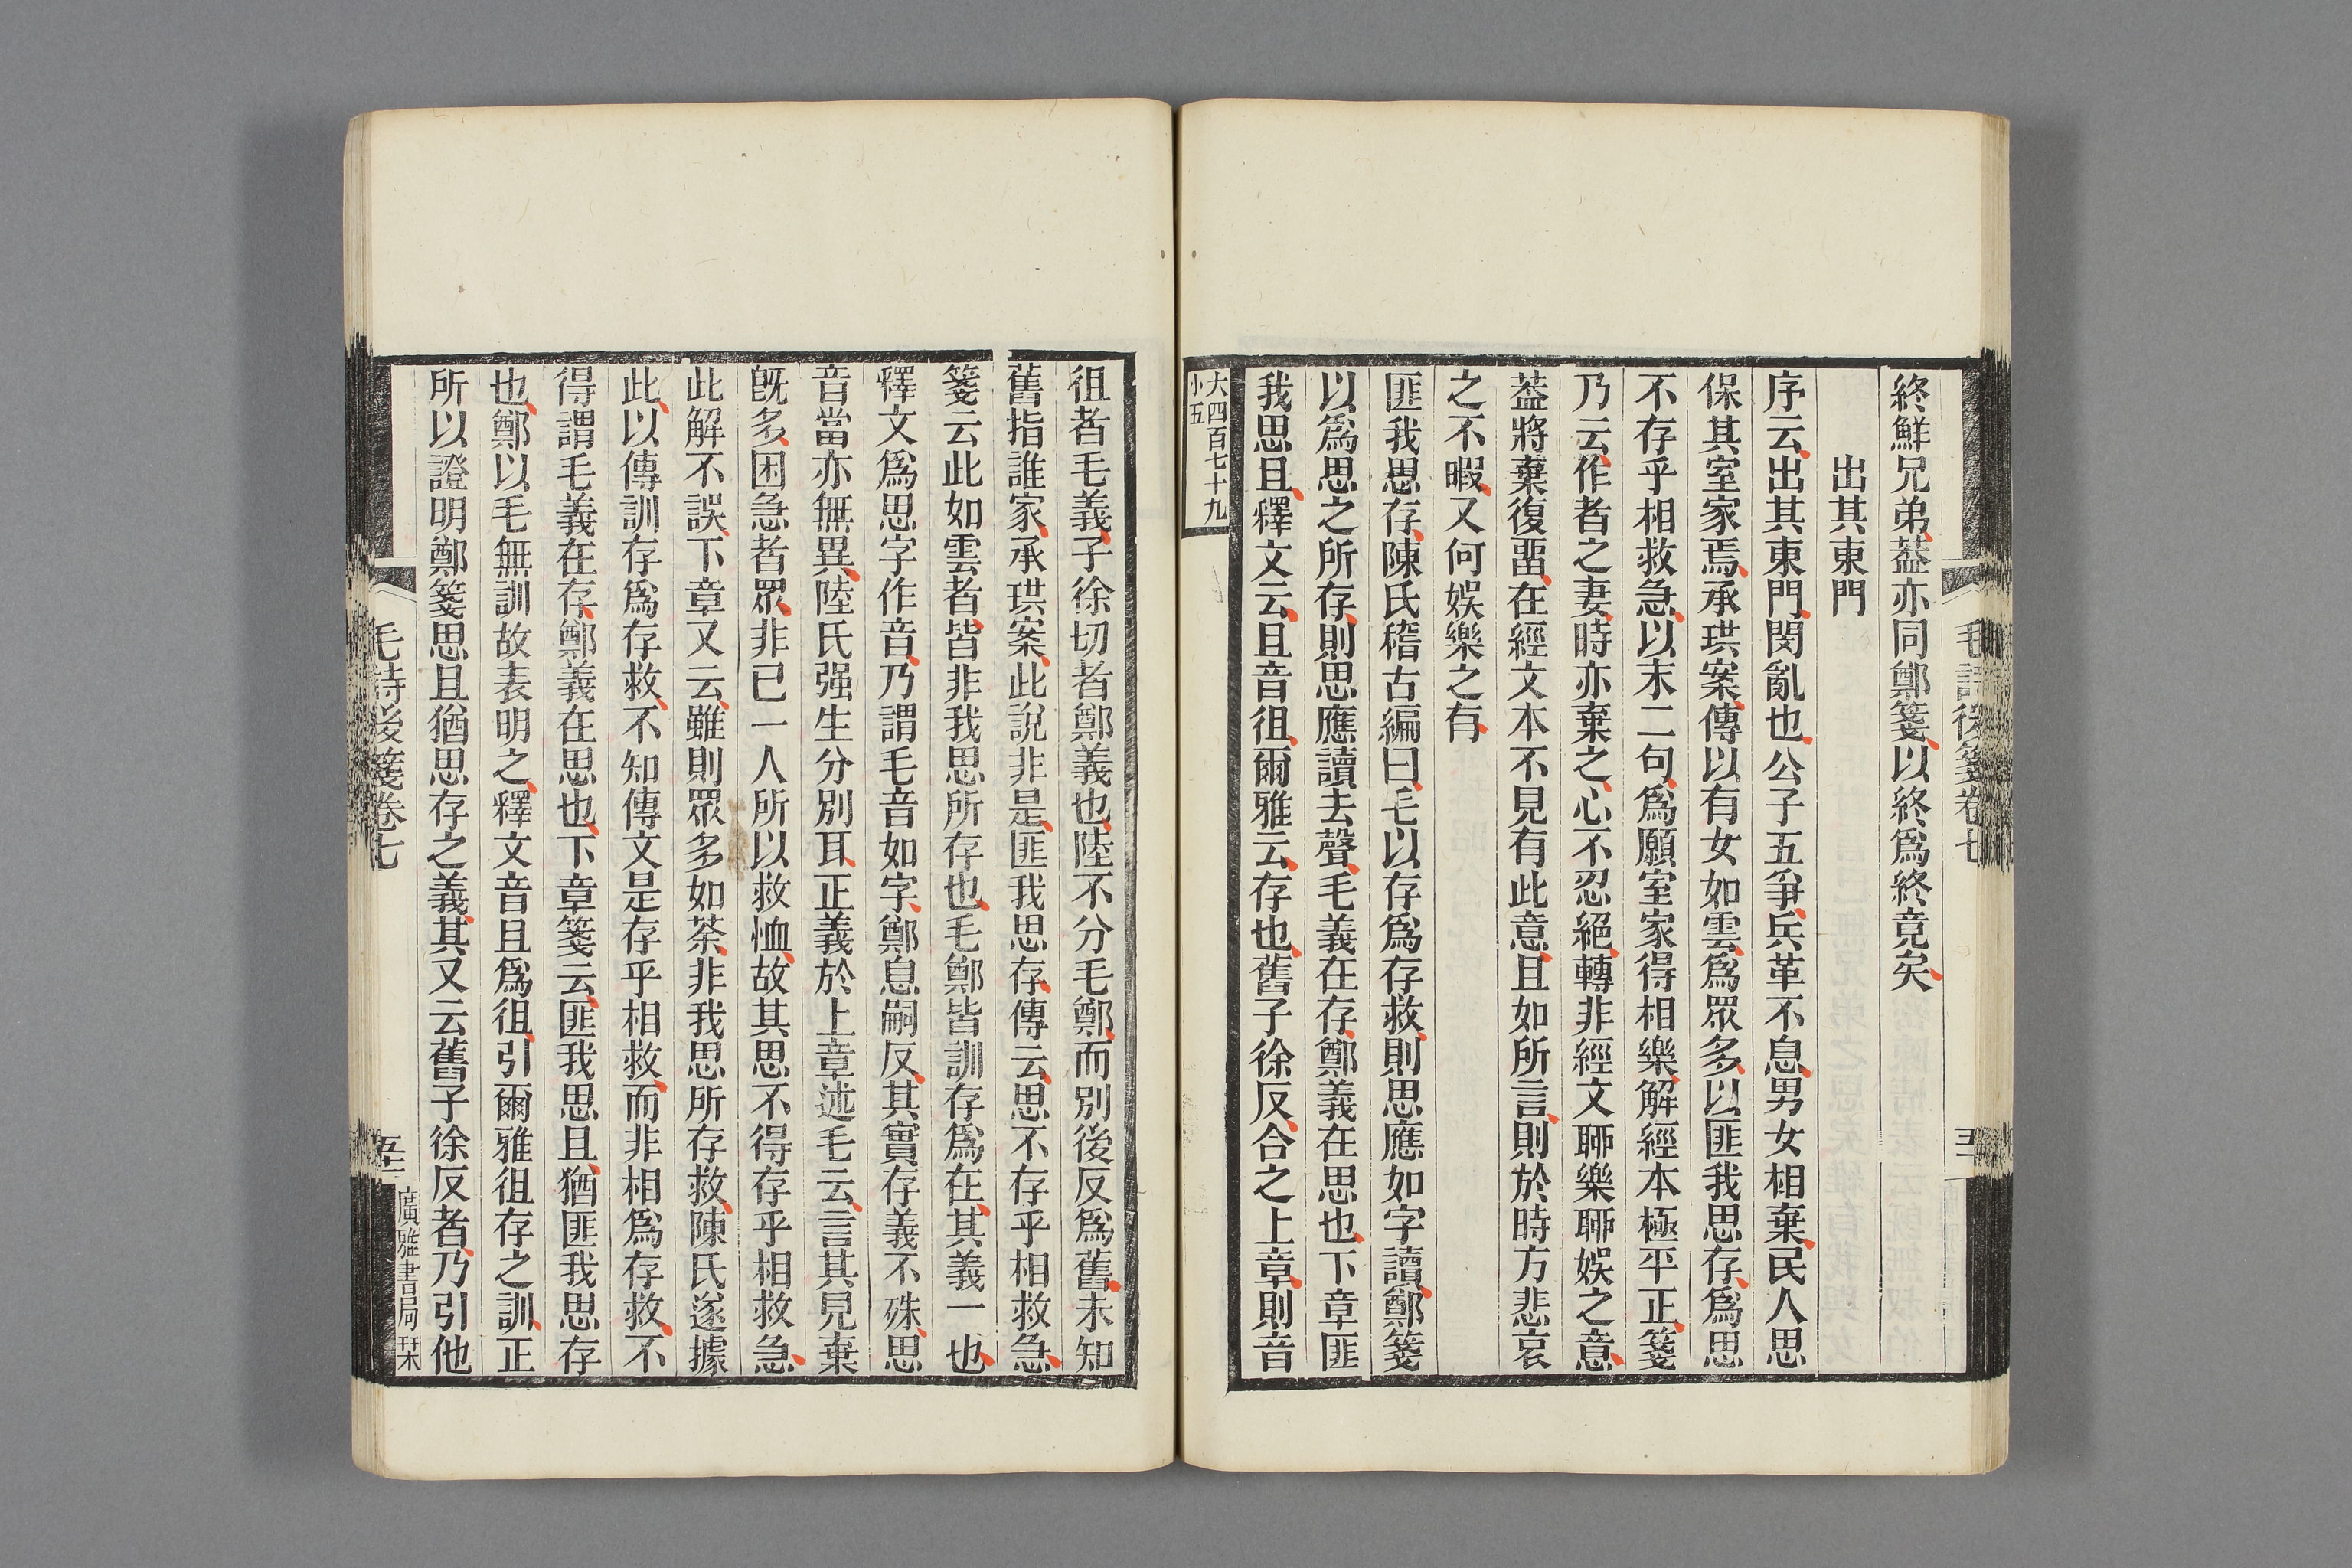 終鮮兄弟葢亦同鄭箋以終爲終竟矣
出其東門
序云出其東門閔亂也公子五爭兵革不息男女相棄民人思
保其室家焉承珙案傳以有女如雲爲眾多以匪我思存爲思
不存乎相救急以末二句爲願室家得相樂解經本極平正箋
乃云作者之妻時亦棄之心不忍絕轉非經文聊樂聊娛之意
葢將棄復畱在經文本不見有此意且如所言則於時方悲哀
之不暇又何娛樂之有
匪我思存陳氏稽古編曰毛以存爲存救則思應如字讀鄭箋
以爲思之所存則思應讀去聲毛義在存鄭義在思也下章匪
我思且釋文云且音徂爾雅云存也舊子徐反合之上章則音
大四百七十九
小五
徂者毛義子徐切者鄭義也陸不分毛鄭而別後反爲舊未知
舊指誰家承珙案此說非是匪我思存傳云思不存乎相救急
箋云此如雲者皆非我思所存也毛鄭皆訓存爲在其義一也
釋文爲思字作音乃謂毛音如字鄭息嗣反其實存義不殊思
音當亦無異陸氏强生分別耳正義於上章述毛云言其見棄
旣多困急者眾非已一人所以救恤故其思不得存乎相救急
此解不誤下章又云雖則眾多如荼非我思所存救陳氏遂據
此以傳訓存爲存救不知傳文是存乎相救而非相爲存救不
得謂毛義在存鄭義在思也下章箋云匪我思且猶匪我思存
也鄭以毛無訓故表明之釋文音且爲徂引爾雅徂存之訓正
所以證明鄭箋思且猶思存之義其又云舊子徐反者乃引他
毛詩後箋卷七
廣雅書局栞